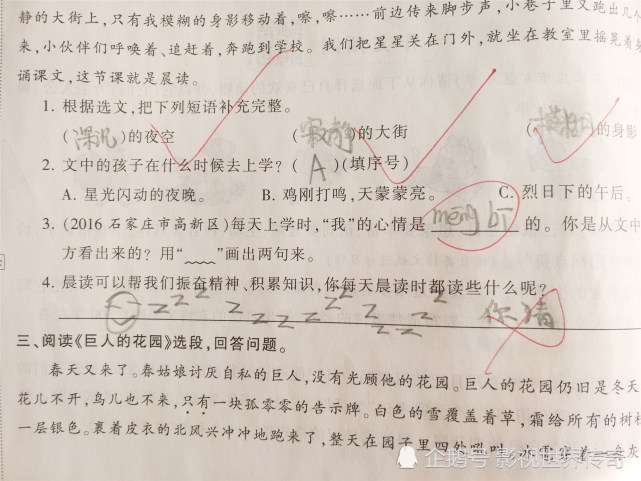 静的大街上，只有我模糊的身影移动着，嚓，嚓……前边传来脚步声，小巷子里又跑出几人
来，小伙伴们呼唤着、追赶着，奔跑到学校。我们把星星关在门外，就坐在教室里摇晃着
诵课文，这节课就是晨读。
1. 根据选文，把下列短语补充完整。
(深沉)的夜空 (寂静)的大街 (模糊)的身影
2. 文中的孩子在什么时候去上学？( A )(填序号)
A. 星光闪动的夜晚。 B. 鸡刚打鸣，天蒙蒙亮。 C. 烈日下的午后。
3. (2016 石家庄市高新区)每天上学时，“我”的心情是 mēng bī 的。你是从文中
方看出来的？用“﹏﹏”画出两句来。
4. 晨读可以帮我们振奋精神、积累知识，你每天晨读时都读些什么呢？
z z z z z z z z z z z z z 你猜
三、阅读《巨人的花园》选段，回答问题。
春天又来了。春姑娘讨厌自私的巨人，没有光顾他的花园。巨人的花园仍旧是冬天
花儿不开，鸟儿也不来，只有一块孤零零的告示牌。白色的雪覆盖着草，霜给所有的树
一层银色。裹着皮衣的北风兴冲冲地跑来了，整天在园子里四处吼叫。冰雹穿着一身灰
企鹅号 影视世界传奇